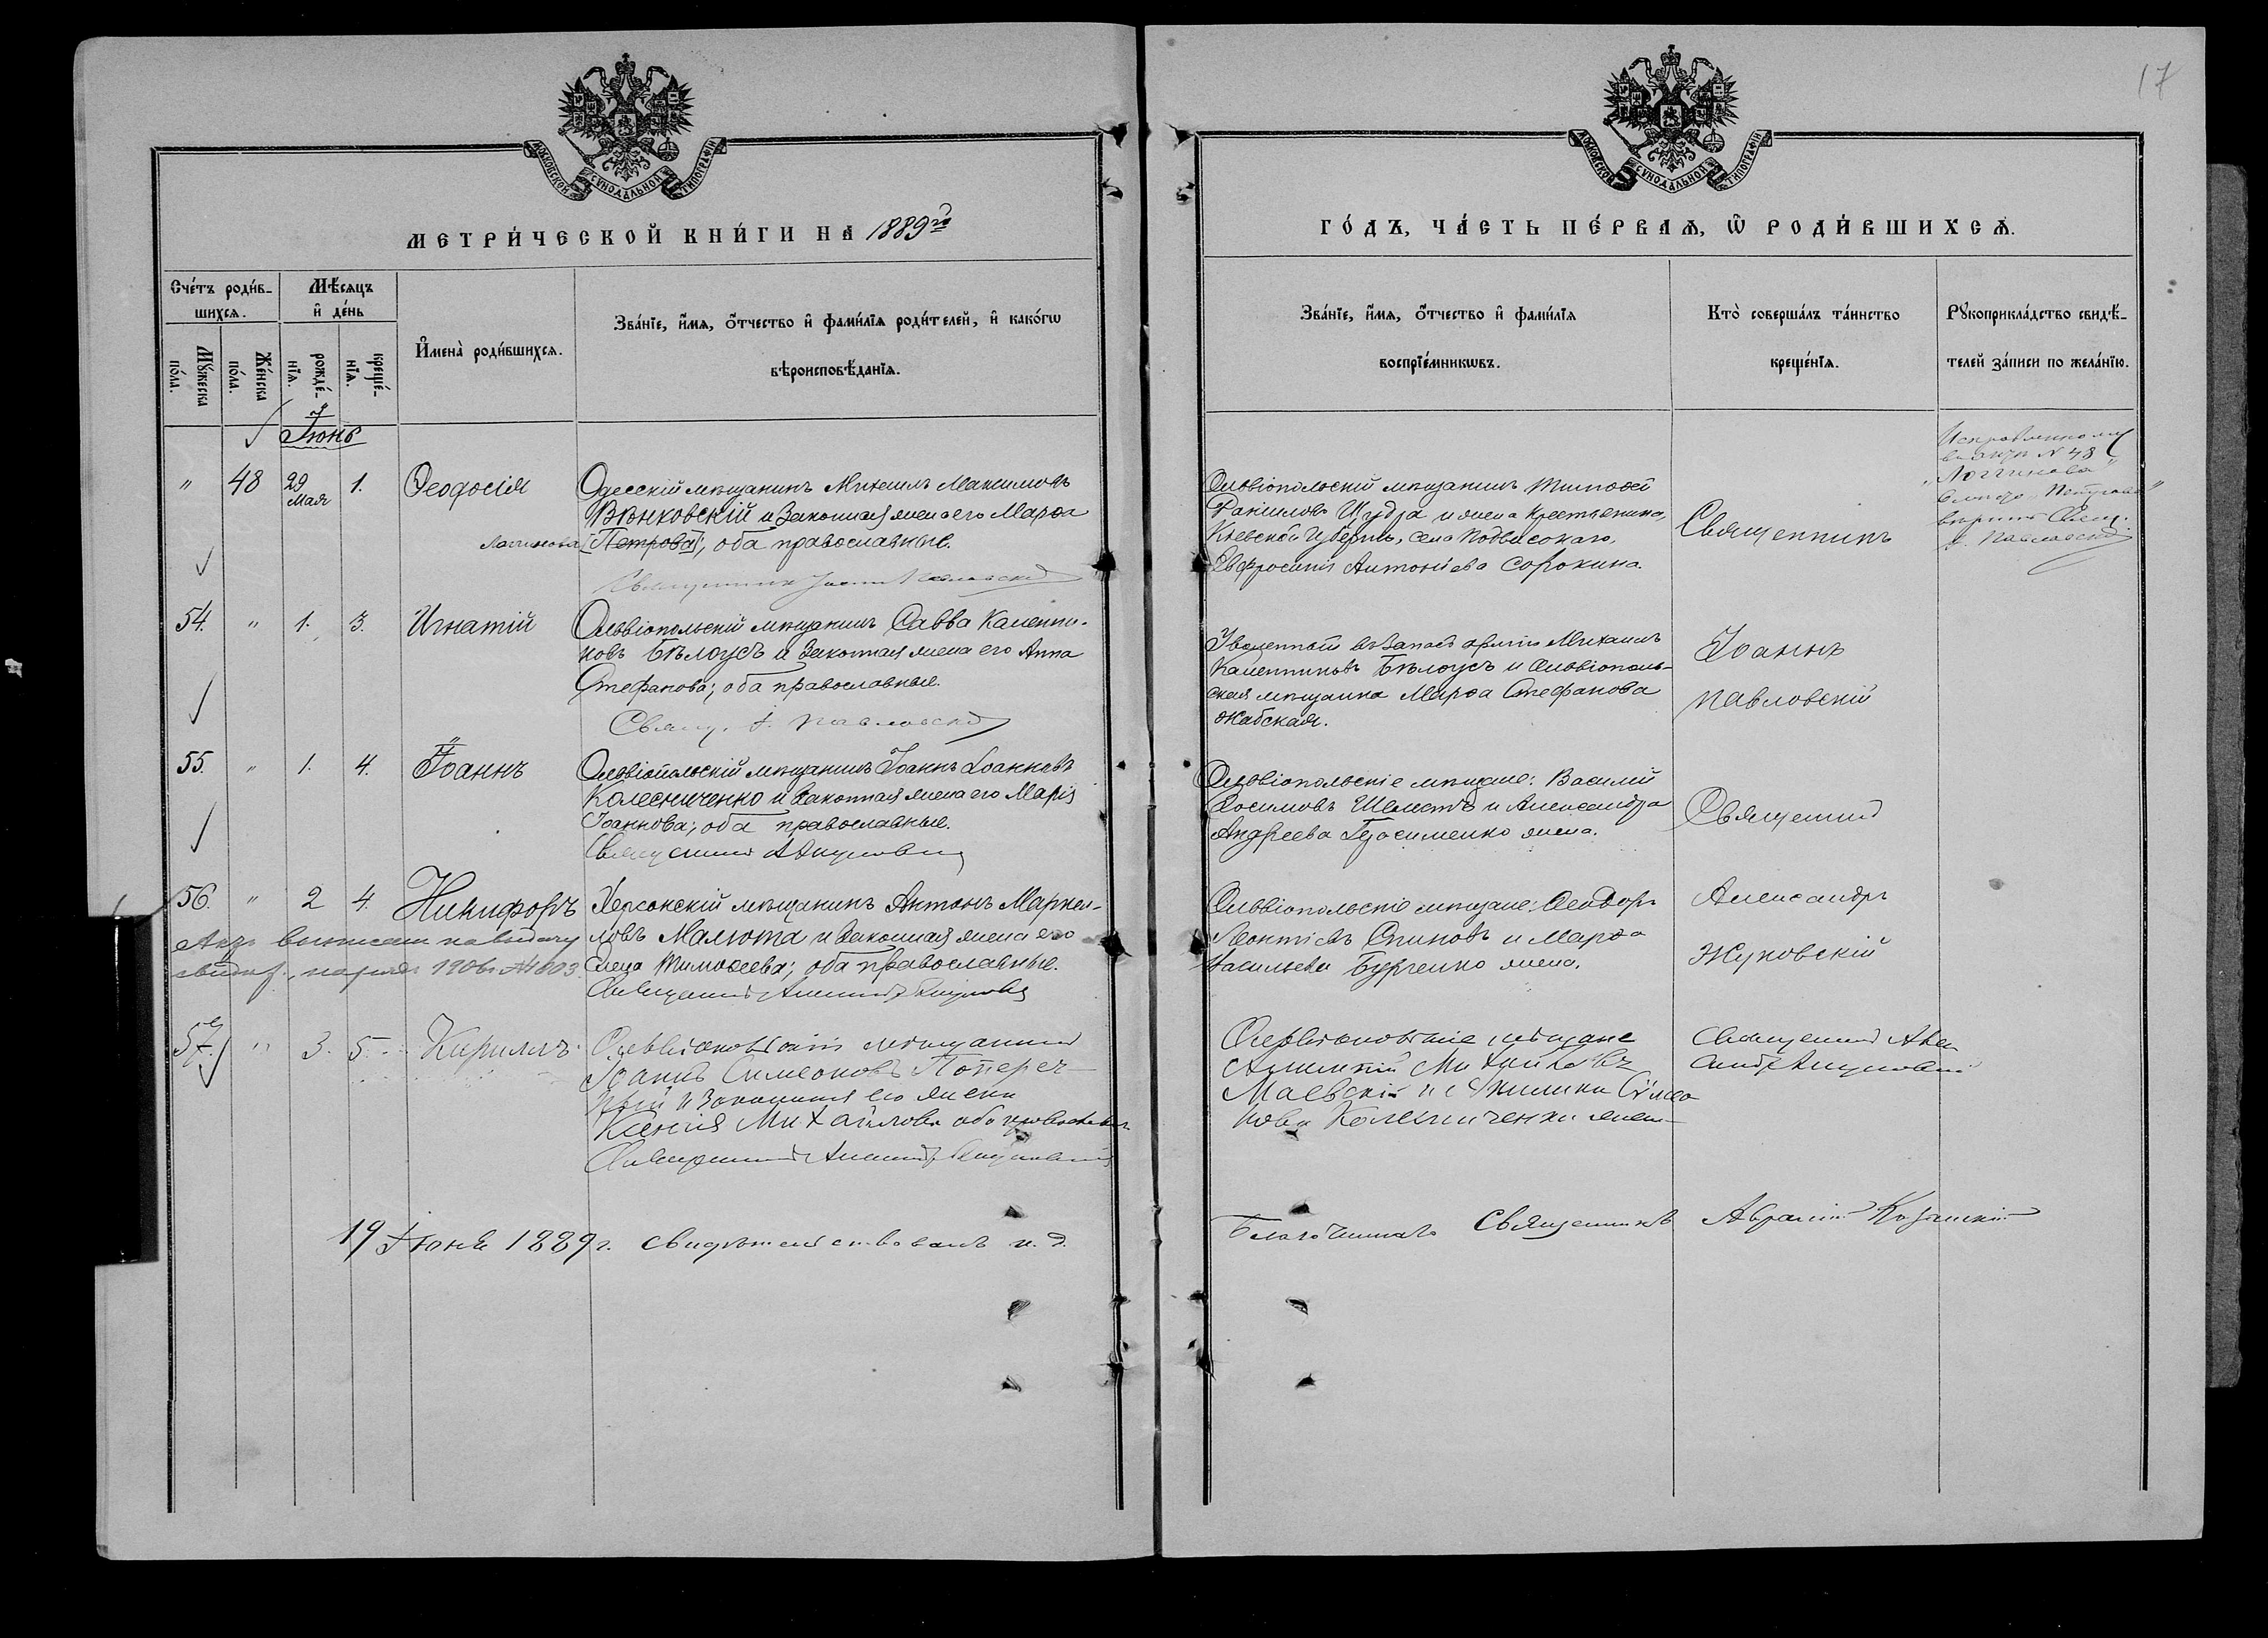 17
МОСКОВСКОЙ СУНОДАЛЬНОЙ ТИПОГРАФІИ
МОСКОВСКОЙ СУНОДАЛЬНОЙ ТИПОГРАФІИ
МЕТРИ́ЧЕСКОЙ КНИ́ГИ НА 1889й
ГО́ДЪ, ЧА́СТЬ ПЕ́РВАѦ, Ѡ РОДИ́ВШИХСѦ.
Сче́тъ роди́в-
шихсѧ.
Мꙋ́жеска
по́ла.
Же́нска
по́ла.
Мѣ́сѧцъ
и де́нь
рожде́-
нїѧ.
креще́-
нїѧ.
Имена̀ роди́вшихсѧ.
Зва́нїе, и́мѧ, о́тчество и фами́лїѧ роди́телей, и како́гѡ
вѣроисповѣ́данїѧ.
Зва́нїе, и́мѧ, о́тчество и фами́лїѧ
воспрїе́мникѡвъ.
Кто̀ соверша́лъ та́инство
креще́нїѧ.
Рꙋкоприкла́дство свидѣ́-
телей за́писи по жела́нїю.
Іюнь
" 48 29 Мая 1. Ѳеодосія
Одесскій мѣщанинъ Михаилъ Максимовъ
Вѣнковскій и законная жена его Марѳа
Логгинова [Петрова]; оба православные.
Священникъ Іоаннъ Павловскій
Ольвіопольскій мѣщанинъ Тимоѳей
Даниловъ Щудра и жена крестьянина,
Кіевской губерніи, села Подвысокаго,
Евфросинія Антоніева Сорокина.
Священникъ
Исправленному
въ актѣ № 48
„Логгинова"
вмѣсто „Петрова"
вѣрить Свящ.
І. Павловскій
54. " 1. 3. Игнатій
Ольвіопольскій мѣщанинъ Савва Калинни-
ковъ Бѣлоусъ и законная жена его Анна
Стефанова; оба православные.
Свящ. І. Павловскій
Уволенный въ запасъ арміи Михаилъ
Калинниковъ Бѣлоусъ и Ольвіополь-
ская мѣщанка Марѳа Стефанова
Жабская.
Іоаннъ
Павловскій
55. " 1. 4. Іоаннъ
Ольвіопольскій мѣщанинъ Іоаннъ Іоанновъ
Колесниченко и законная жена его Марія
Іоаннова; оба православные.
Священникъ
Ольвіопольскіе мѣщане: Василій
Зосимовъ и Александра
Андреева Герасименко жена.
Священникъ
56. " 2 4. Никифоръ
Херсонскій мѣщанинъ Антонъ Маркел-
ловъ Малюта и законная жена его
Тимоѳеева; оба православные.
Священникъ
Актъ выписанъ на выдачу
1906 г. № 1803.
Ольвіопольскіе мѣщане: Ѳеодоръ
Леонтіевъ Спиновъ и Марѳа
Васильева Бурченко жена.
Александръ
Жуковскій
57. " 3. 5. Кириллъ
Ольвіопольскій мѣщанинъ
Іоаннъ Симеоновъ Попереч-
ный и законная его жена
Ксенія Михайлова оба православные
Священникъ
Ольвіопольскіе мѣщане
Михайловъ
Маевскій и Акилина Симео-
нова Колесниченко жена
Священникъ Алек-
сандръ Жуковскій
19 Іюня 1889 г. свидѣтельствовалъ и. д.
Благочиннаго Священникъ Аврамій